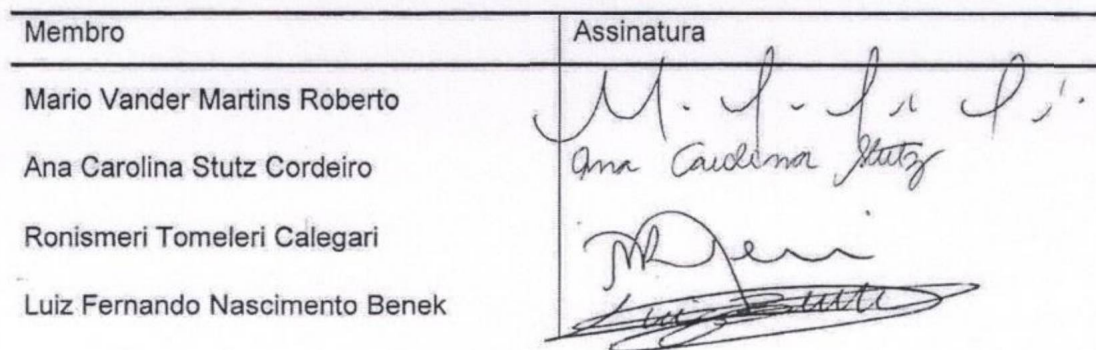 Membro Assinatura
Mario Vander Martins Roberto
Ana Carolina Stutz Cordeiro Ana Carolina Stutz
Ronismeri Tomeleri Calegari
Luiz Fernando Nascimento Benek